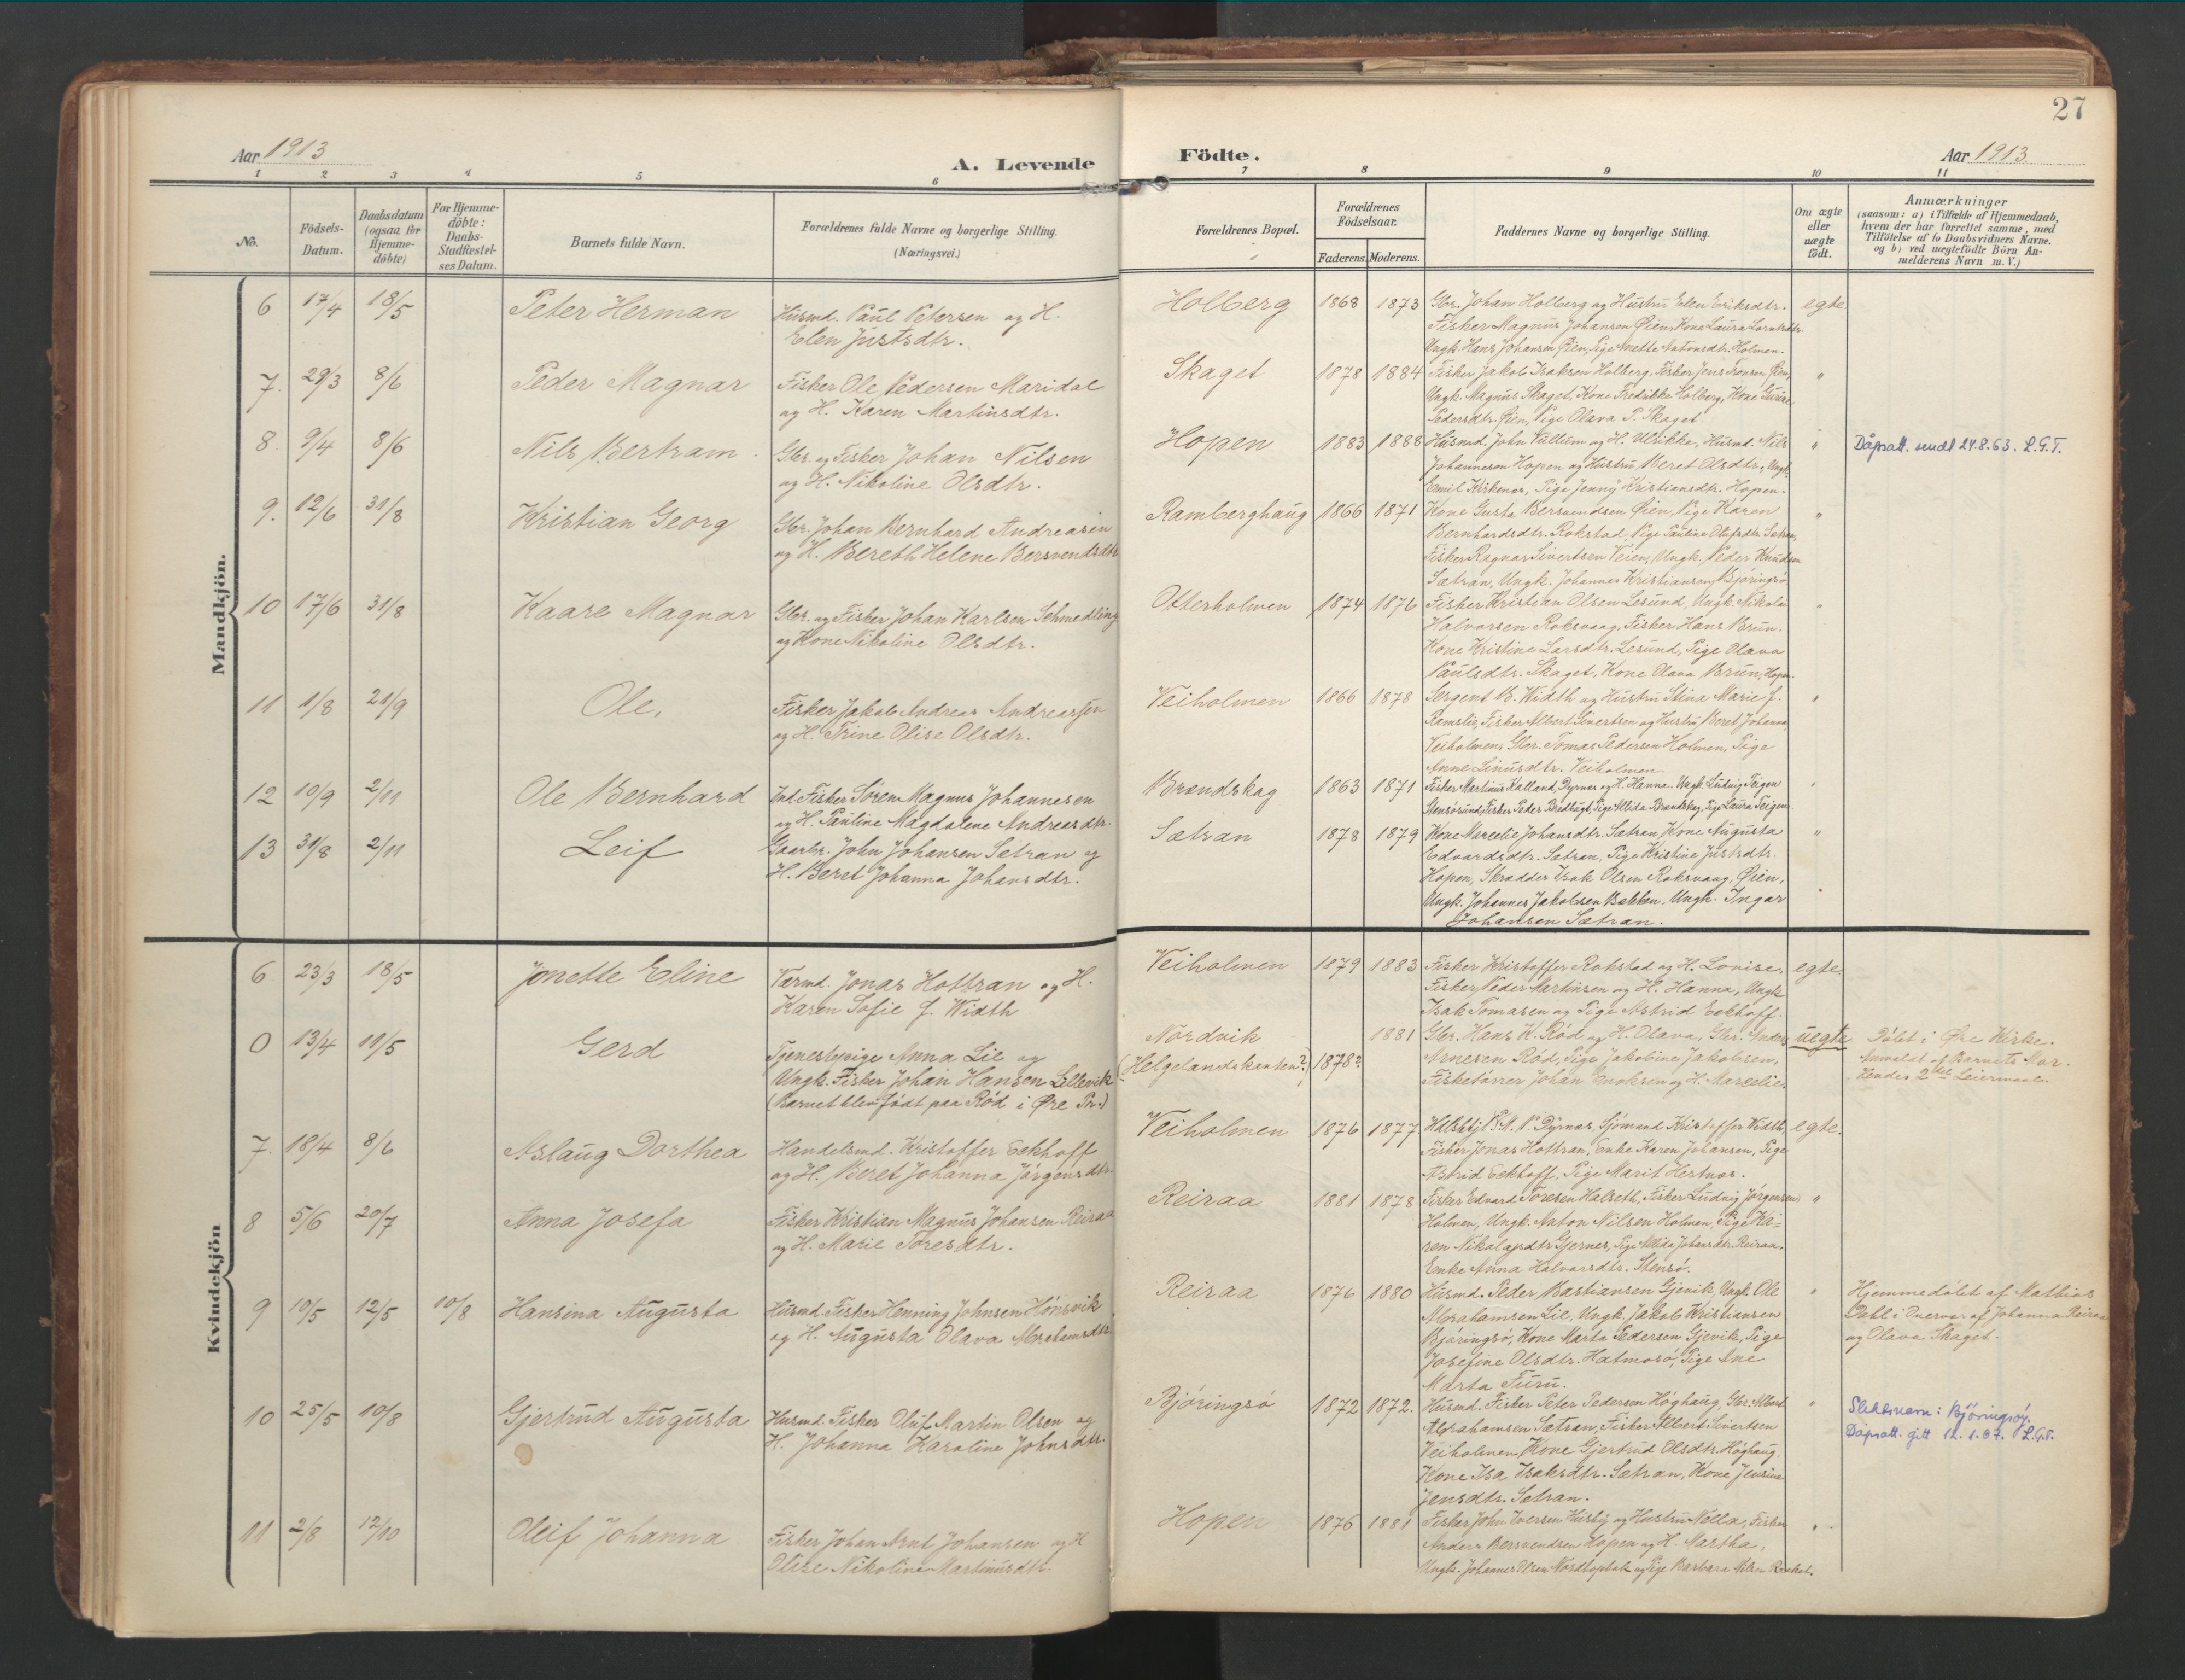 27
Aar 1913
A. Levende
Födte.
Aar 1913
1 2 3 4 5 6 7 8 9 10 11
No.
Födsels-
Datum.
Daabsdatum
(ogsaa for
Hjemme-
döbte)
For Hjemme-
döbte:
Daabs-
Stadfæstel-
ses Datum.
Barnets fulde Navn.
Forældrenes fulde Navne og borgerlige Stilling.
(Næringsvei.)
Forældrenes Bopæl.
Forældrenes
Födselsaar.
Faderens. Moderens.
Faddernes Navne og borgerlige Stilling.
Om ægte
eller
uægte
födt.
Anmærkninger
(saasom: a) i Tilfælde af Hjemmedaab,
hvem der har forrettet samme, med
Tilföielse af to Daabsvidners Navne.
og b) ved uægtefödte Börn An-
melderens Navn m. V.)
Mandkjön.
6 17/4 18/5 Peter Herman
Husmd. Paul Petersen og H.
Elen Justsdtr.
Holberg 1868 1873
Gbr. Johan Holberg og Hustru Elen Eriksdtr.
Fisker Magnus Johansen Øien, Kone Laura Lorntsdtr.
Ungk. Hans Johansen Øien, Pige Anette Antonsdtr. Holmen.
egte.
7. 29/3 8/6 Peder Magnar
Fisker Ole Pedersen Maridal
og H. Karen Martinsdtr.
Skaget 1878 1884
Fisker Jakob Isaksen Holberg, Fisker Jens Tronsen Øien,
Ungk. Magnus Skaget, Kone Fredrikke Holberg, Kone Gurine
Pedersdtr. Øien, Pige Olava P. Skaget
"
8. 9/4 8/6 Nils Bertram.
Gbr. og Fisker Johan Nilsen
og H. Nikoline Olsdtr.
Hopen 1883 1888
Husmd. John Vullum og H. Ulrikke, Husmd. Nils
Johannesen Hopen og Hustru Beret Olsdtr., Ungk.
Emil Kirkenes, Pige Jenny Kristiansdtr. Hopen.
"
Dåpsatt. sendt 24.8.63. L.G.T.
9. 12/6 31/8 Kristian Georg
Gbr. Johan Bernhard Andreasen
og H. Bereth Helene Bersvendsdtr
Ramberghaug 1866 1871
Kone Gusta Bersvendsen Øien, Pige Karen
Bernhardsdtr. Rokstad, Pige Pauline Olufsdtr. Sætran,
Fisker Ragnar Sivertsen Veien, Ungk. Peder Knudsen
Sætran, Ungk. Johannes Kristiansen, Björingsö
"
10 17/6 31/8 Kaare Magnar
Gbr. og Fisker Johan Karlsen Schmedling
og Kone Nikoline Olsdtr.
Otterholmen 1874 1876
Fisker Kristian Olsen Lesund, Ungk. Nikolai
Halvorsen Roksvaag, Fisker Hans Brun.
Kone Kristine Larsdtr. Lesund, Pige Olava
Paulsdtr. Skaget, Kone Olava Brun, Hopen.
"
11 1/8 21/9 Ole.
Fisker Jakob Andreas Andreassen
og H. Trine Olise Olsdtr.
Veiholmen 1866 1878
Sergent B. Width og Hustru Stina Marie f.
Ramslie, Fisker Albert Sivertsen og Hustru Beret Johanna,
Veiholmen, Gbr. Tomas Pedersen Holmen, Pige
Anne Linusdtr. Veiholmen.
"
12 10/9 2/11 Ole Bernhard
Ind. Fisker Sören Magnus Johannesen
og H. Pauline Magdalene Andreasdtr.
Brændskag 1863 1871
Fisker Martinus Kalland, Dyrnes og H. Hanna. Ungk. Ludvig Teigen
Stensösund, Fisker Peder Bredhügt, Pige Alida Brandskag, Pige Laura Teigen.
"
13 31/8 2/11 Leif
Gaarbr. John Johansen Sætran og
H. Beret Johanna Johansdtr.
Sætran 1878 1879
Kone Marcelie Johansdtr. Sætran, Kone Augusta
Edvardsdtr. Sætran, Pige Kristine Justsdtr.
Hopen, Skrædder Isak Olsen Roksvaag, Øien,
Ungk. Johannes Jakobsen Bakken. Ungk. Ingar
Johansen Sætran.
"
Kvindekjön
6 23/3 18/5 Jonette Eline
Værmd. Jonas Hottran og H.
Karen Sofie f. Width
Veiholmen 1879 1883
Fisker Kristoffer Rokstad og H. Lovise.
Fisker Peder Martinsen og H. Hanna, Ungk
Isak Tomasen og Pige Astrid Eckhoff.
egte.
0 13/4 11/5 Gerd
Tjenestepige Anna Lie og
Ungk. Fisker Johan Hansen Lillevik
(Barnet blev födt paa Rød i Øre Pr.)
Nordvik
(Helgelandskanten?) 1878? 1881
Gbr. Hans K. Röd og H. Olava, Gbr. Anders
Arnesen Röd, Pige Jakobine Jakobsen,
Fisketörrer Johan Enoksen og H. Marcelie.
uegte
Döbt i Øre Kirke.
Anmeldt af Barnets Mor.
Hendes 2det Leiermaal.
7. 18/4 8/6 Aslaug Dorthea
Handelsmd. Kristoffer Eckhoff
og H. Beret Johanna Jörgensdtr.
Veiholmen 1876 1877
P. Dyrnes, Sjömand Kristoffer Width
Fisker Jonas Hottran, Enke Karen Johansen, Pige
Astrid Eckhoff, Pige Marit Hestnes.
egte.
8 5/6 20/7 Anna Josefa
Fisker Kristian Magnus Johansen Reiraa
og H. Marie Toresdtr.
Reiraa 1881 1878
Fisker Edvard Toresen Halseth, Fisker Ludvig Jørgensen
Holmen, Ungk. Anton Nilsen Holmen, Pige Ka-
ren Nikolajsdtr Gjernes, Pige Alida Johansdtr. Reiraa.
Enke Anna Halvorsdtr. Stensö.
"
9 10/5 12/5 10/8 Hansina Augusta
Husmd. Fisker Henning Johnsen Hönsvik
og H. Augusta Olava Abrahamsdtr.
Reiraa 1876 1880
Husmd. Peder Bastiansen Gjevik, Ungk. Ole
Abrahamsen Lie, Ungk. Jakob Kristiansen
Björingsö, Kone Marta Pedersen Gjevik, Pige
Josefine Olsdtr. Hatmosö, Pige Ane
Marta Furu.
"
Hjemmedöbt af Mathias
Dahl i Overvær af Johanna Reiraa
og Olava Skaget.
10 25/5 10/8 Gjertrud Augusta
Husmd. Fisker Oluf Martin Olsen og
H. Johanna Karoline Johnsdtr.
Björingsö 1872 1872.
Husmd. Fisker Peter Pedersen Höghaug, Gbr. Albert
Abrahamsen Sætran, Fisker Albert Sivertsen
Veiholmen, Kone Gjertrud Olsdtr. Höghaug,
Kone Isa Isaksdtr. Sætran, Kone Jensine
Jensdtr. Sætran.
"
Slektsnavn: Björingsöy.
Dåpsatt. gitt 12.1.67. L.G.T.
11 2/8 12/10 Oleif Johanna
Fisker Johan Arnt Johansen og H
Olise Nikoline Martinusdtr.
Hopen 1876 1881
Fisker John Iversen Husby og Hustru Nella, Fisker
Anders Bersvendsen Hopen og H. Martha,
Ungk. Johannes Olsen og Pige Barbara Nilsen
"